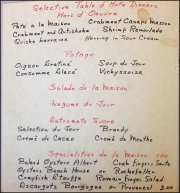 Selective Table d'Hote Dinners
Hors d'Oeuvre
Pate a la Maison Crabmeat Canape Maison
Crabmeat and Artichoke Shrimp Remoulade
Quiche Lorraine Herring in Sour Cream
Potage
Oignon Gratiné Soup du Jour
Consomme Glacé Vichyssoise
Salade de la Maison
Legume du Jour
Entremets Sucre
Selection du Jour Brandy
Creme de Cacao Creme de Menthe
Specialities de la Maison
Baked Oysters Albert Crab Fingers Saute
Oysters Beach House or Rockefeller
Crabmeat Finger Salad
Escargots Bourgogne or Provencal